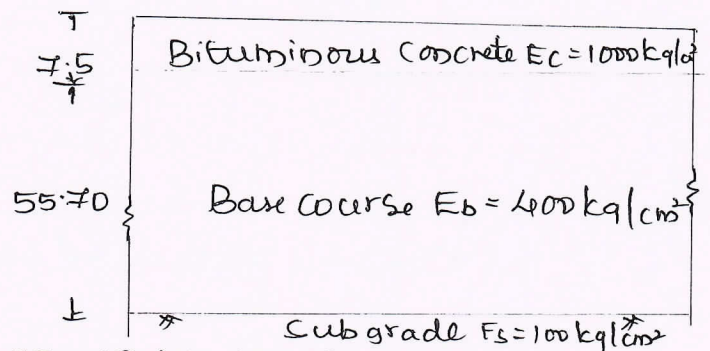 7.5
Bituminous Concrete Ec = 1000kg/cm²
55.70
Base course Eb = 400kg/cm²
Subgrade Es = 100kg/cm²